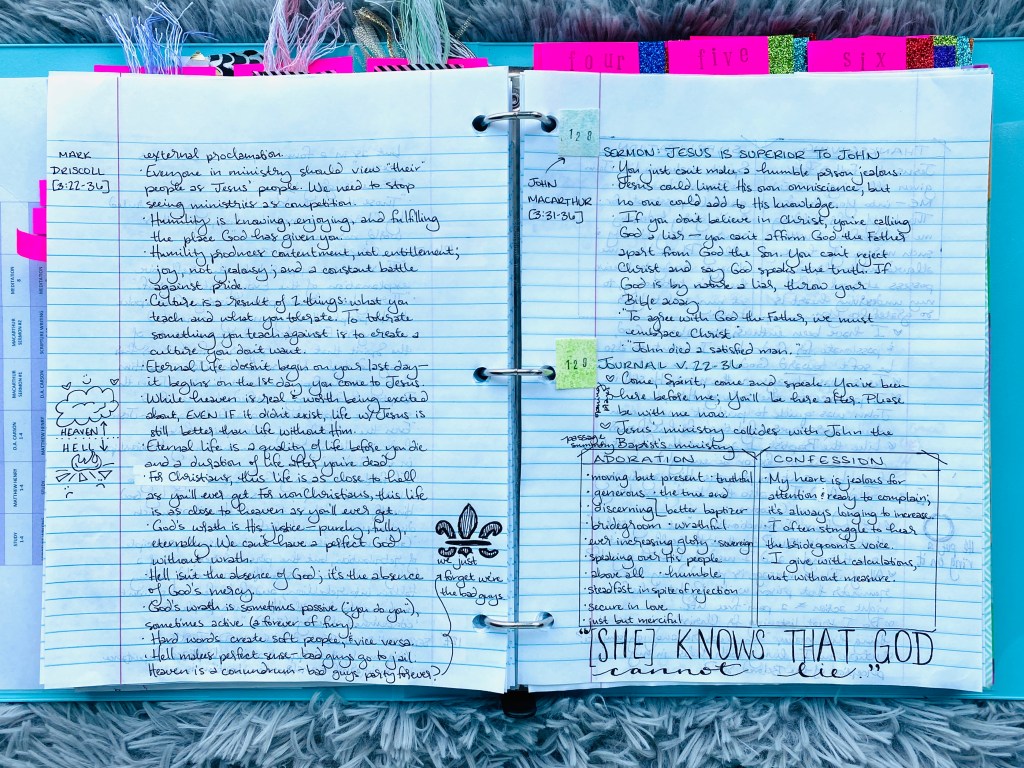 four
five
six
MARK
DRISCOLL
[3:22-36]
external proclamation.
· Everyone in ministry should view "their"
people as Jesus' people. We need to stop
seeing ministries as competition.
· Humility is knowing, enjoying, and fulfilling
the place God has given you.
· Humility produces contentment, not entitlement;
joy, not jealousy; and a constant battle
against pride.
· Culture is a result of 2 things: what you
teach and what you tolerate. To tolerate
something you teach against is to create a
culture you don't want.
· Eternal Life doesn't begin on your last day—
it begins on the 1st day you come to Jesus.
While heaven is real & worth being excited
about, EVEN IF it didn't exist, life w/ Jesus is
still better than life without Him.
· Eternal Life is a quality of life before you die
and a duration of life after you're dead.
· For Christians, this life is as close to hell
as you'll ever get. For nonChristians, this life
is as close to heaven as you'll ever get.
· God's wrath is His justice—purely, fully,
eternally. We can't have a perfect God
without wrath.
· Hell isn't the absence of God; it's the absence
of God's mercy.
· God's wrath is sometimes passive ("you do you"),
sometimes active (a forever of fury).
· Hard words create soft people; & vice versa.
· Hell makes perfect sense—bad guys go to jail.
Heaven is a conundrum—bad guys party forever?
HEAVEN ↑
HELL ↓
we just
forget we're
the bad guys.
MEDITATION
MACARTHUR
SERMON
MACARTHUR
SERMON
D.A. CARSON
1-4
MATTHEW HENRY
1-4
STUDY
1-4
MEDITATION
SCRIPTURE WRITING
D.A. CARSON
MATTHEW HENRY
128
JOHN
MACARTHUR
[3:31-36]
SERMON: JESUS IS SUPERIOR TO JOHN
· You just can't make a humble person jealous.
· Jesus could limit His own omniscience, but
no one could add to His knowledge.
· If you don't believe in Christ, you're calling
God a liar—you can't affirm God the Father
apart from God the Son. You can't reject
Christ and say God speaks the truth. If
God is by nature a liar, throw your
Bible away.
· "To agree with God the Father, we must
embrace Christ."
· "John died a satisfied man."
129
JOURNAL V. 22-36
♡ Come, Spirit, come and speak. You've been
here before me; You'll be here after. Please
be with me now.
♡ Jesus' ministry collides with John the
Baptist's ministry
passage
summary
ADORATION
· moving but present · truthful
· generous · the true and
· discerning better baptizer
· bridegroom · wrathful
· ever increasing glory · sovereign
· speaking over His people
· above all · humble
· steadfast in spite of rejection
· secure in love
· just but merciful
CONFESSION
· My heart is jealous for
attention & ready to complain;
it's always longing to increase.
· I often struggle to hear
the bridegroom's voice.
· I give with calculations,
not without measure.
"[SHE] KNOWS THAT GOD
cannot lie."